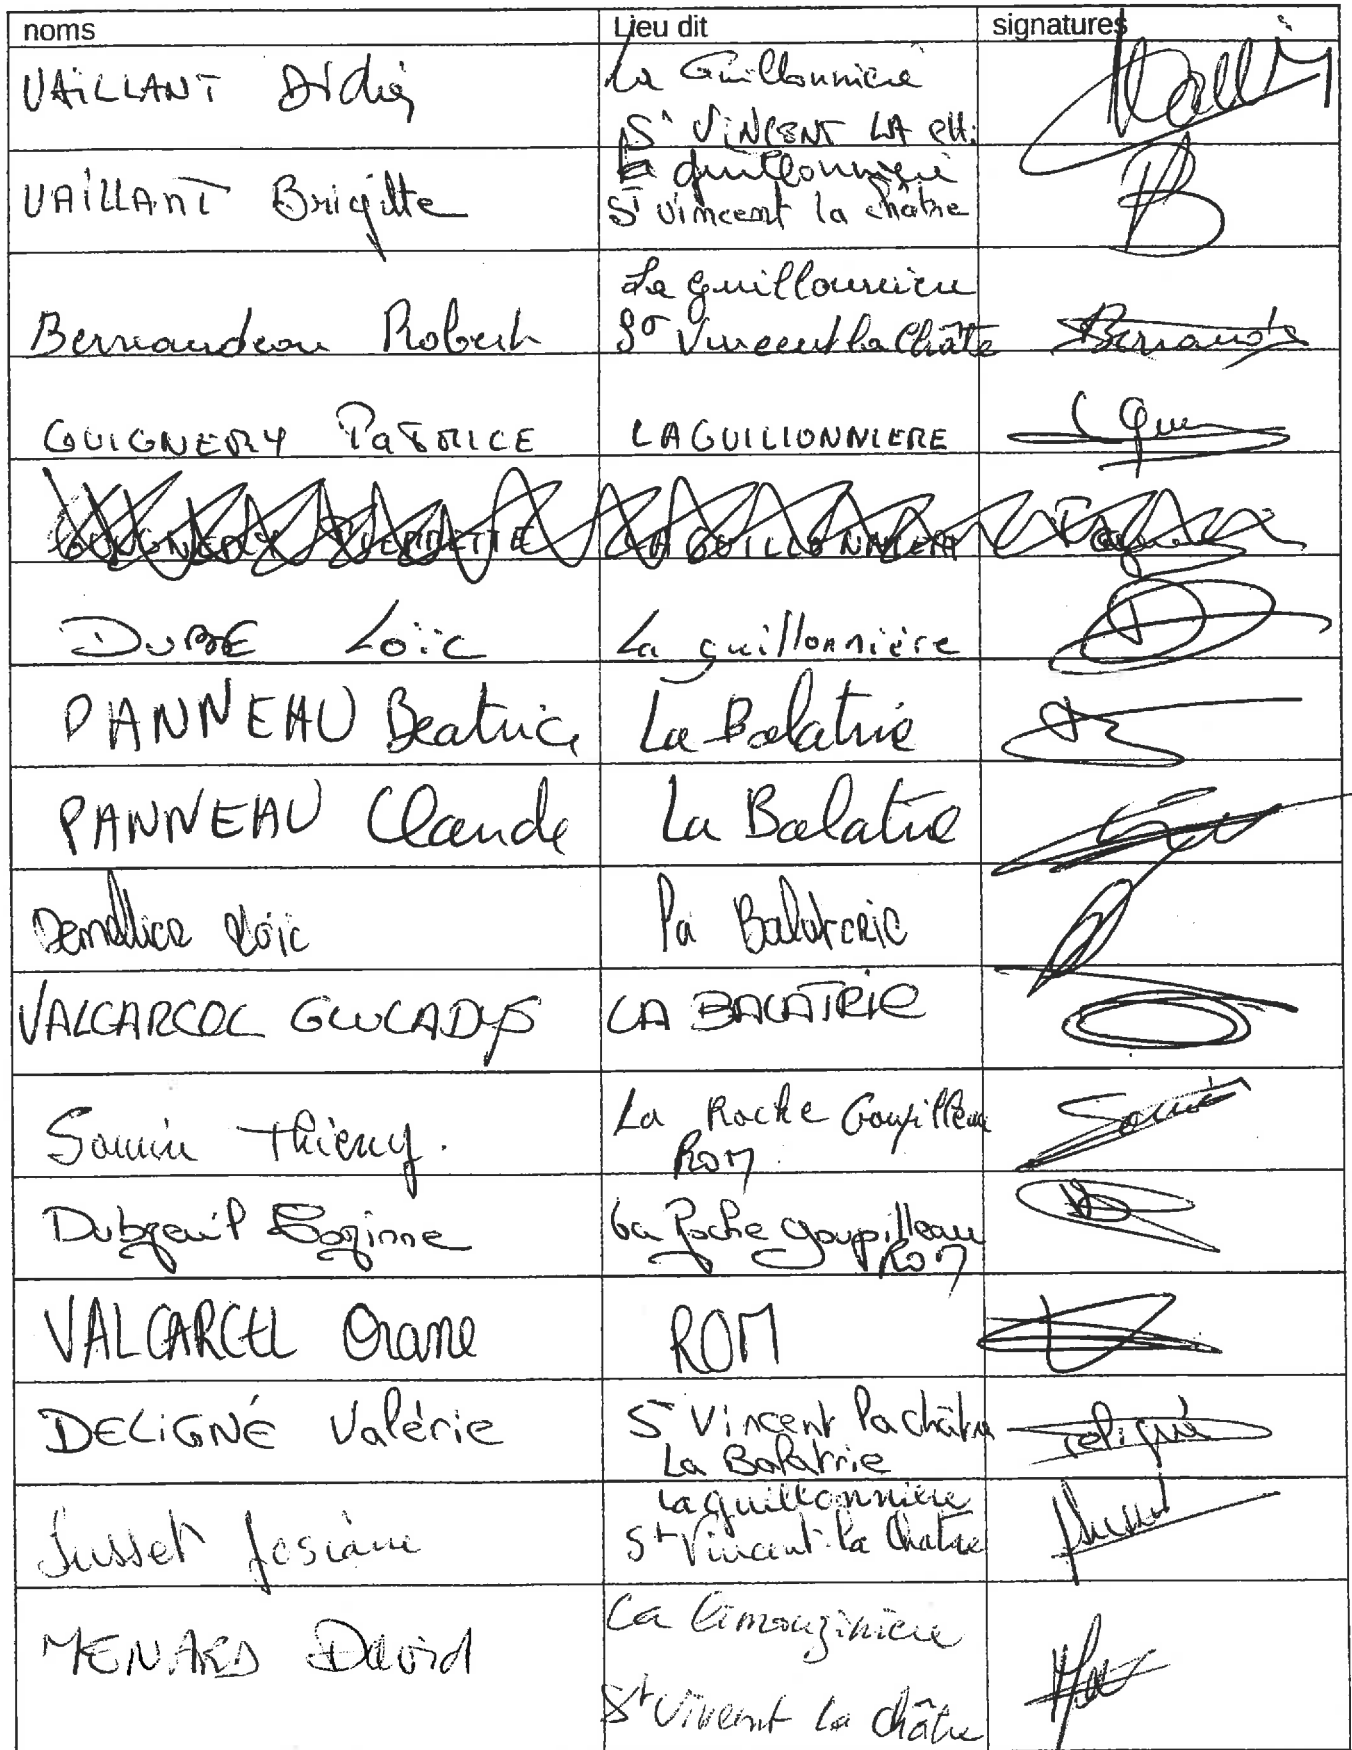 noms Lieu dit signatures
VAILLANT Didier La Guillonnière
St VINCENT LA CH.
VAILLANT Brigitte la guillonnière
St Vincent la châtre
Bernaudeau Robert La guillonnière
St Vincent la Châtre
GUIGNERY PATRICE LAGUILLONNIERE
LA GUILLONNIERE
DUBÉ Loïc La guillonnière
PANNEAU Beatrice La Balatrie
PANNEAU Claude La Balatrie
Loïc la Balatrie
VALCARCEL GWLADYS LA BALATRIE
Thierry. La Roche Goupilleau
ROM
Dubreuil Corinne La Roche Goupilleau
ROM
VALCARCEL Orane ROM
DELIGNÉ Valérie St Vincent la châtre
La Balatrie
Susset Josiane la guillonnière
St Vincent la Chatre
MENARD David La limouzinière
St Vincent la châtre